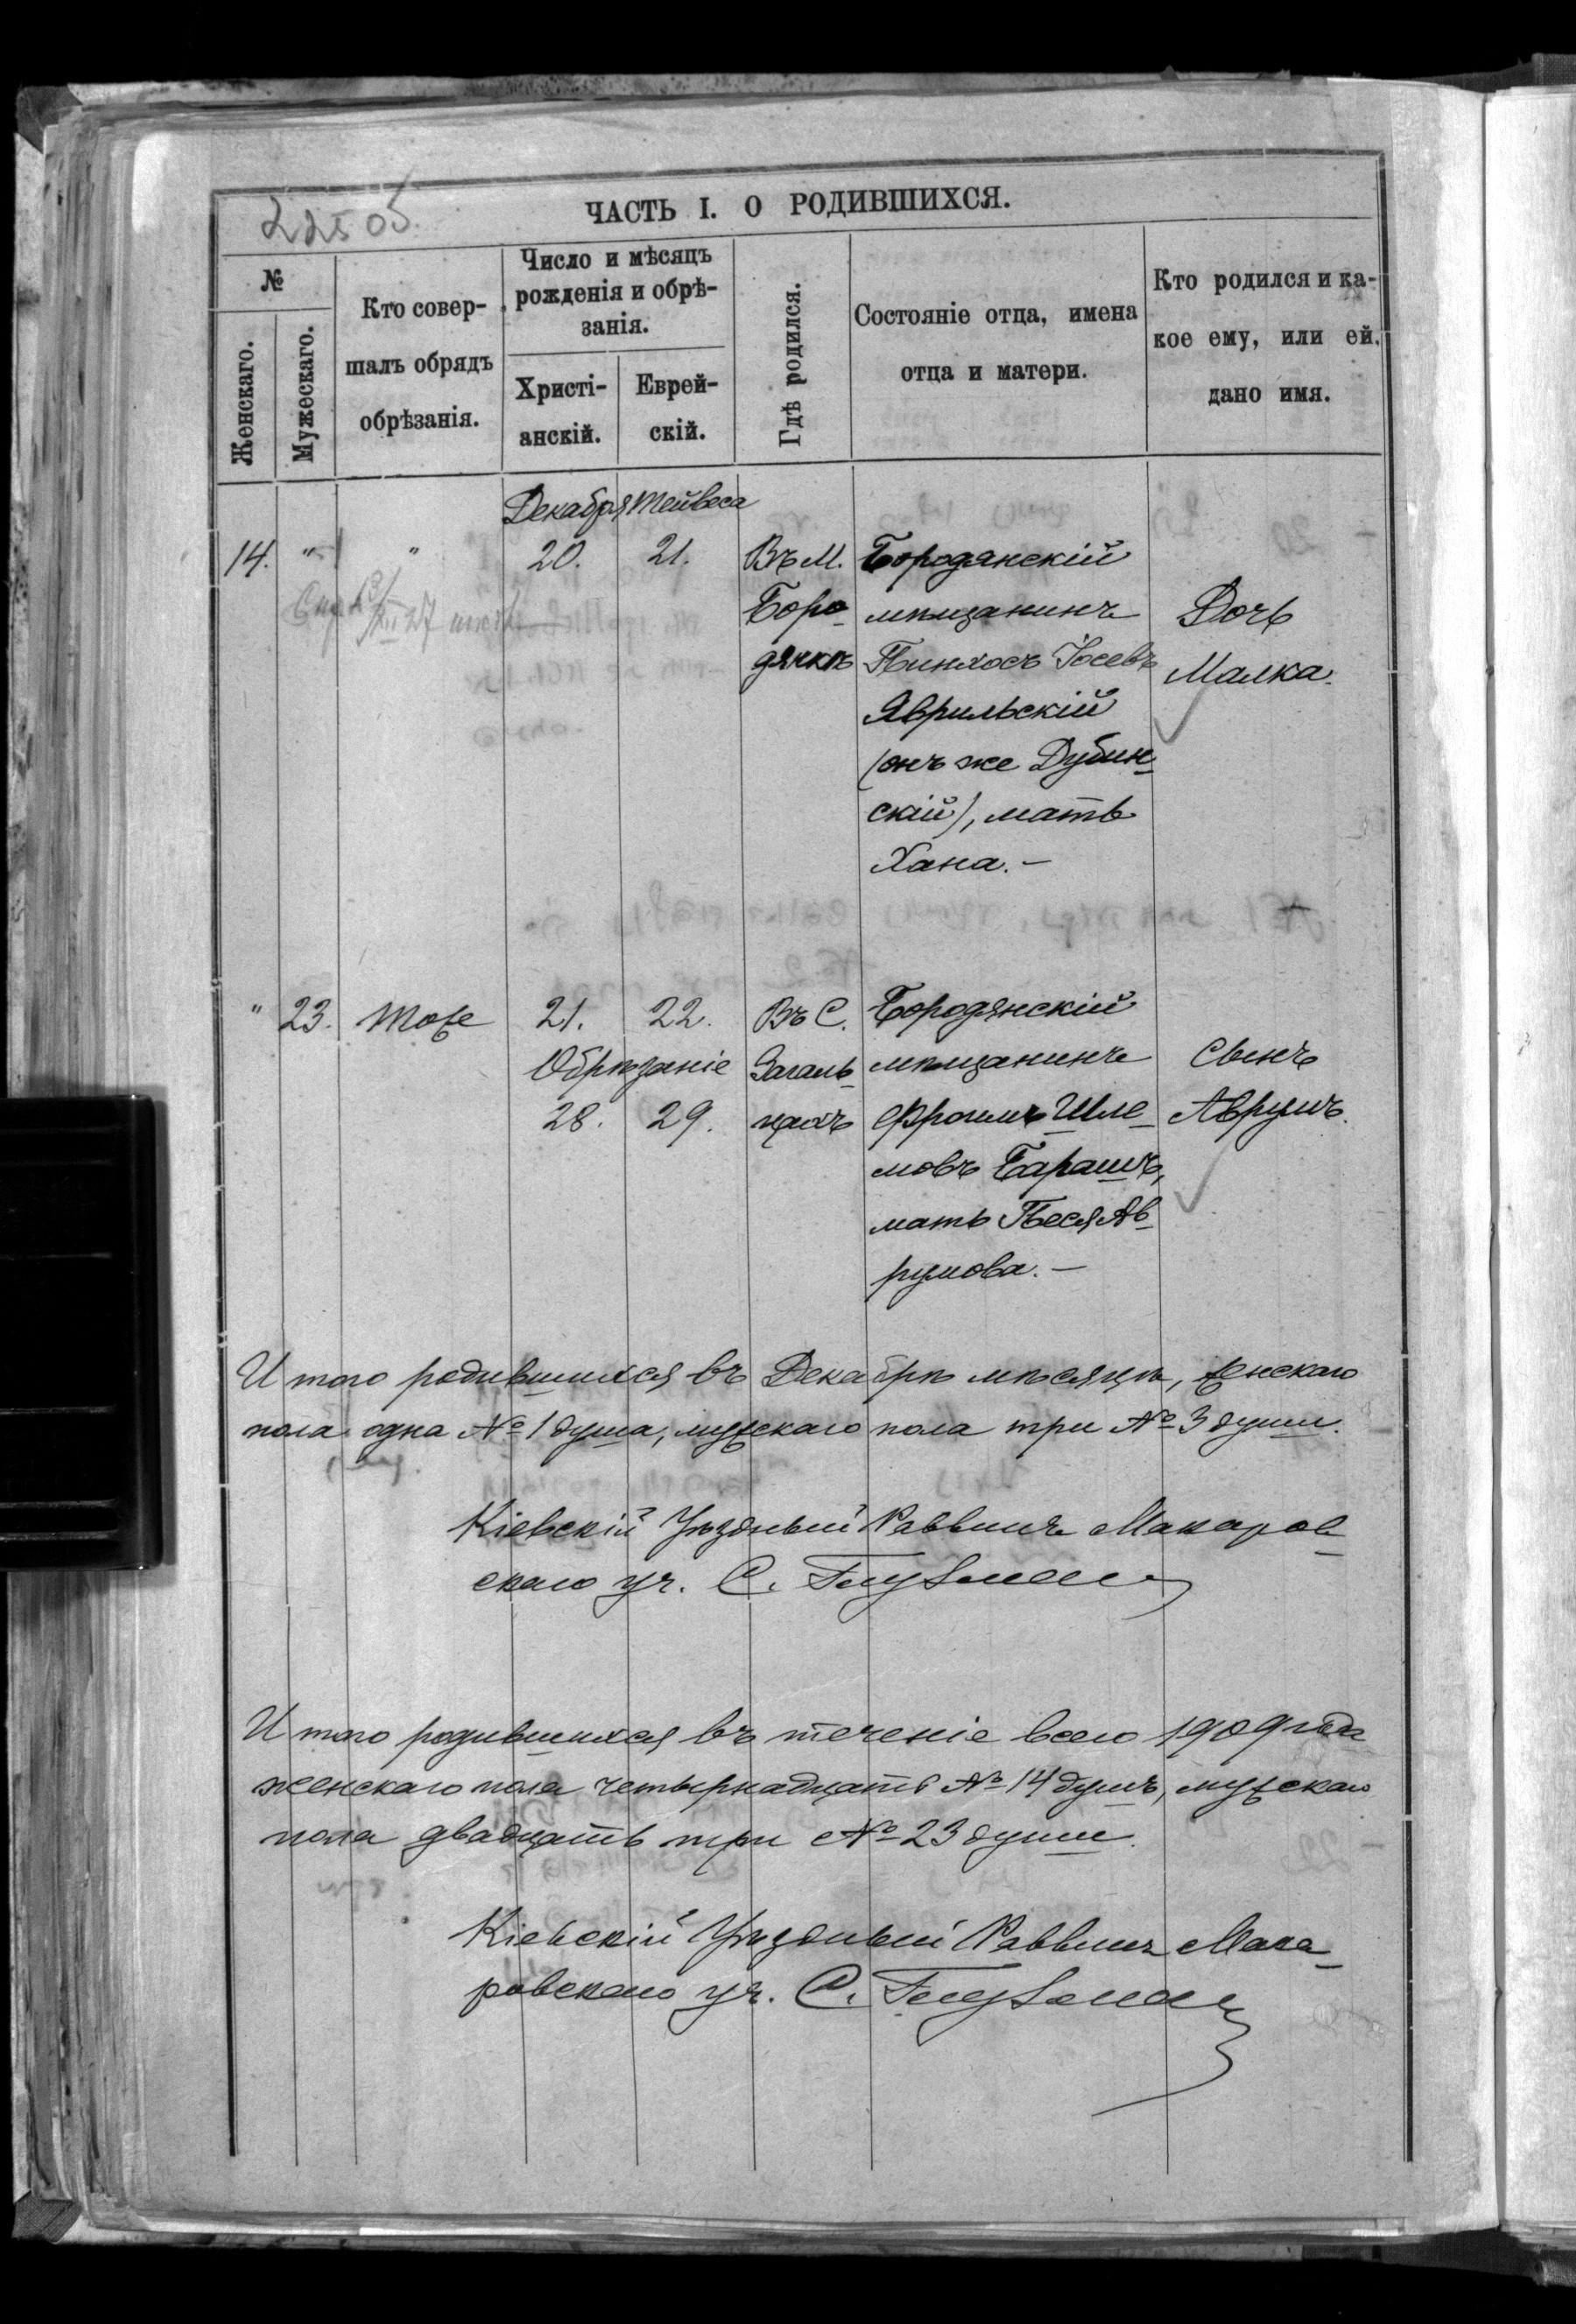 22505
ЧАСТЬ I. О РОДИВШИХСЯ.
№
Женскаго.
Мужескаго.
Кто совер-
шалъ обрядъ
обрѣзанія.
Число и мѣсяцъ
рожденія и обрѣ-
занія.
Христі-
анскій.
Еврей-
скій.
Гдѣ родился.
Состояніе отца, имена
отца и матери.
Кто родился и ка-
кое ему, или ей.
дано имя.
Декабря Тейвеса
14. " " 20. 21. Въ М. Бородянскій
Боро- мѣщанинъ Дочь
дянкѣ Пинхосъ Іосевъ Малка.
Яврильскій
(онъ же Дубин-
скій), мать
Хана. —
" 23. Тоже 21. 22. Въ С. Бородянскій
Обрѣзаніе Загаль- мѣщанинъ Сынъ
28. 29. цахъ Фроимъ Шле- Аврумъ.
мовъ Барашъ,
мать Песя Ав-
румова. —
Итого родившихся въ Декабрѣ мѣсяцѣ, женскаго
пола одна № 1 душа, мужскаго пола три № 3 души.
Кіевскій Уѣздный Раввинъ Макаров-
скаго уч. С.
Итого родившихся въ теченіе всего 1909 года
женскаго пола четырнадцать № 14 душъ, мужскаго
пола двадцать три № 23 души.
Кіевскій Уѣздный Раввинъ Мака-
ровскаго уч. С.